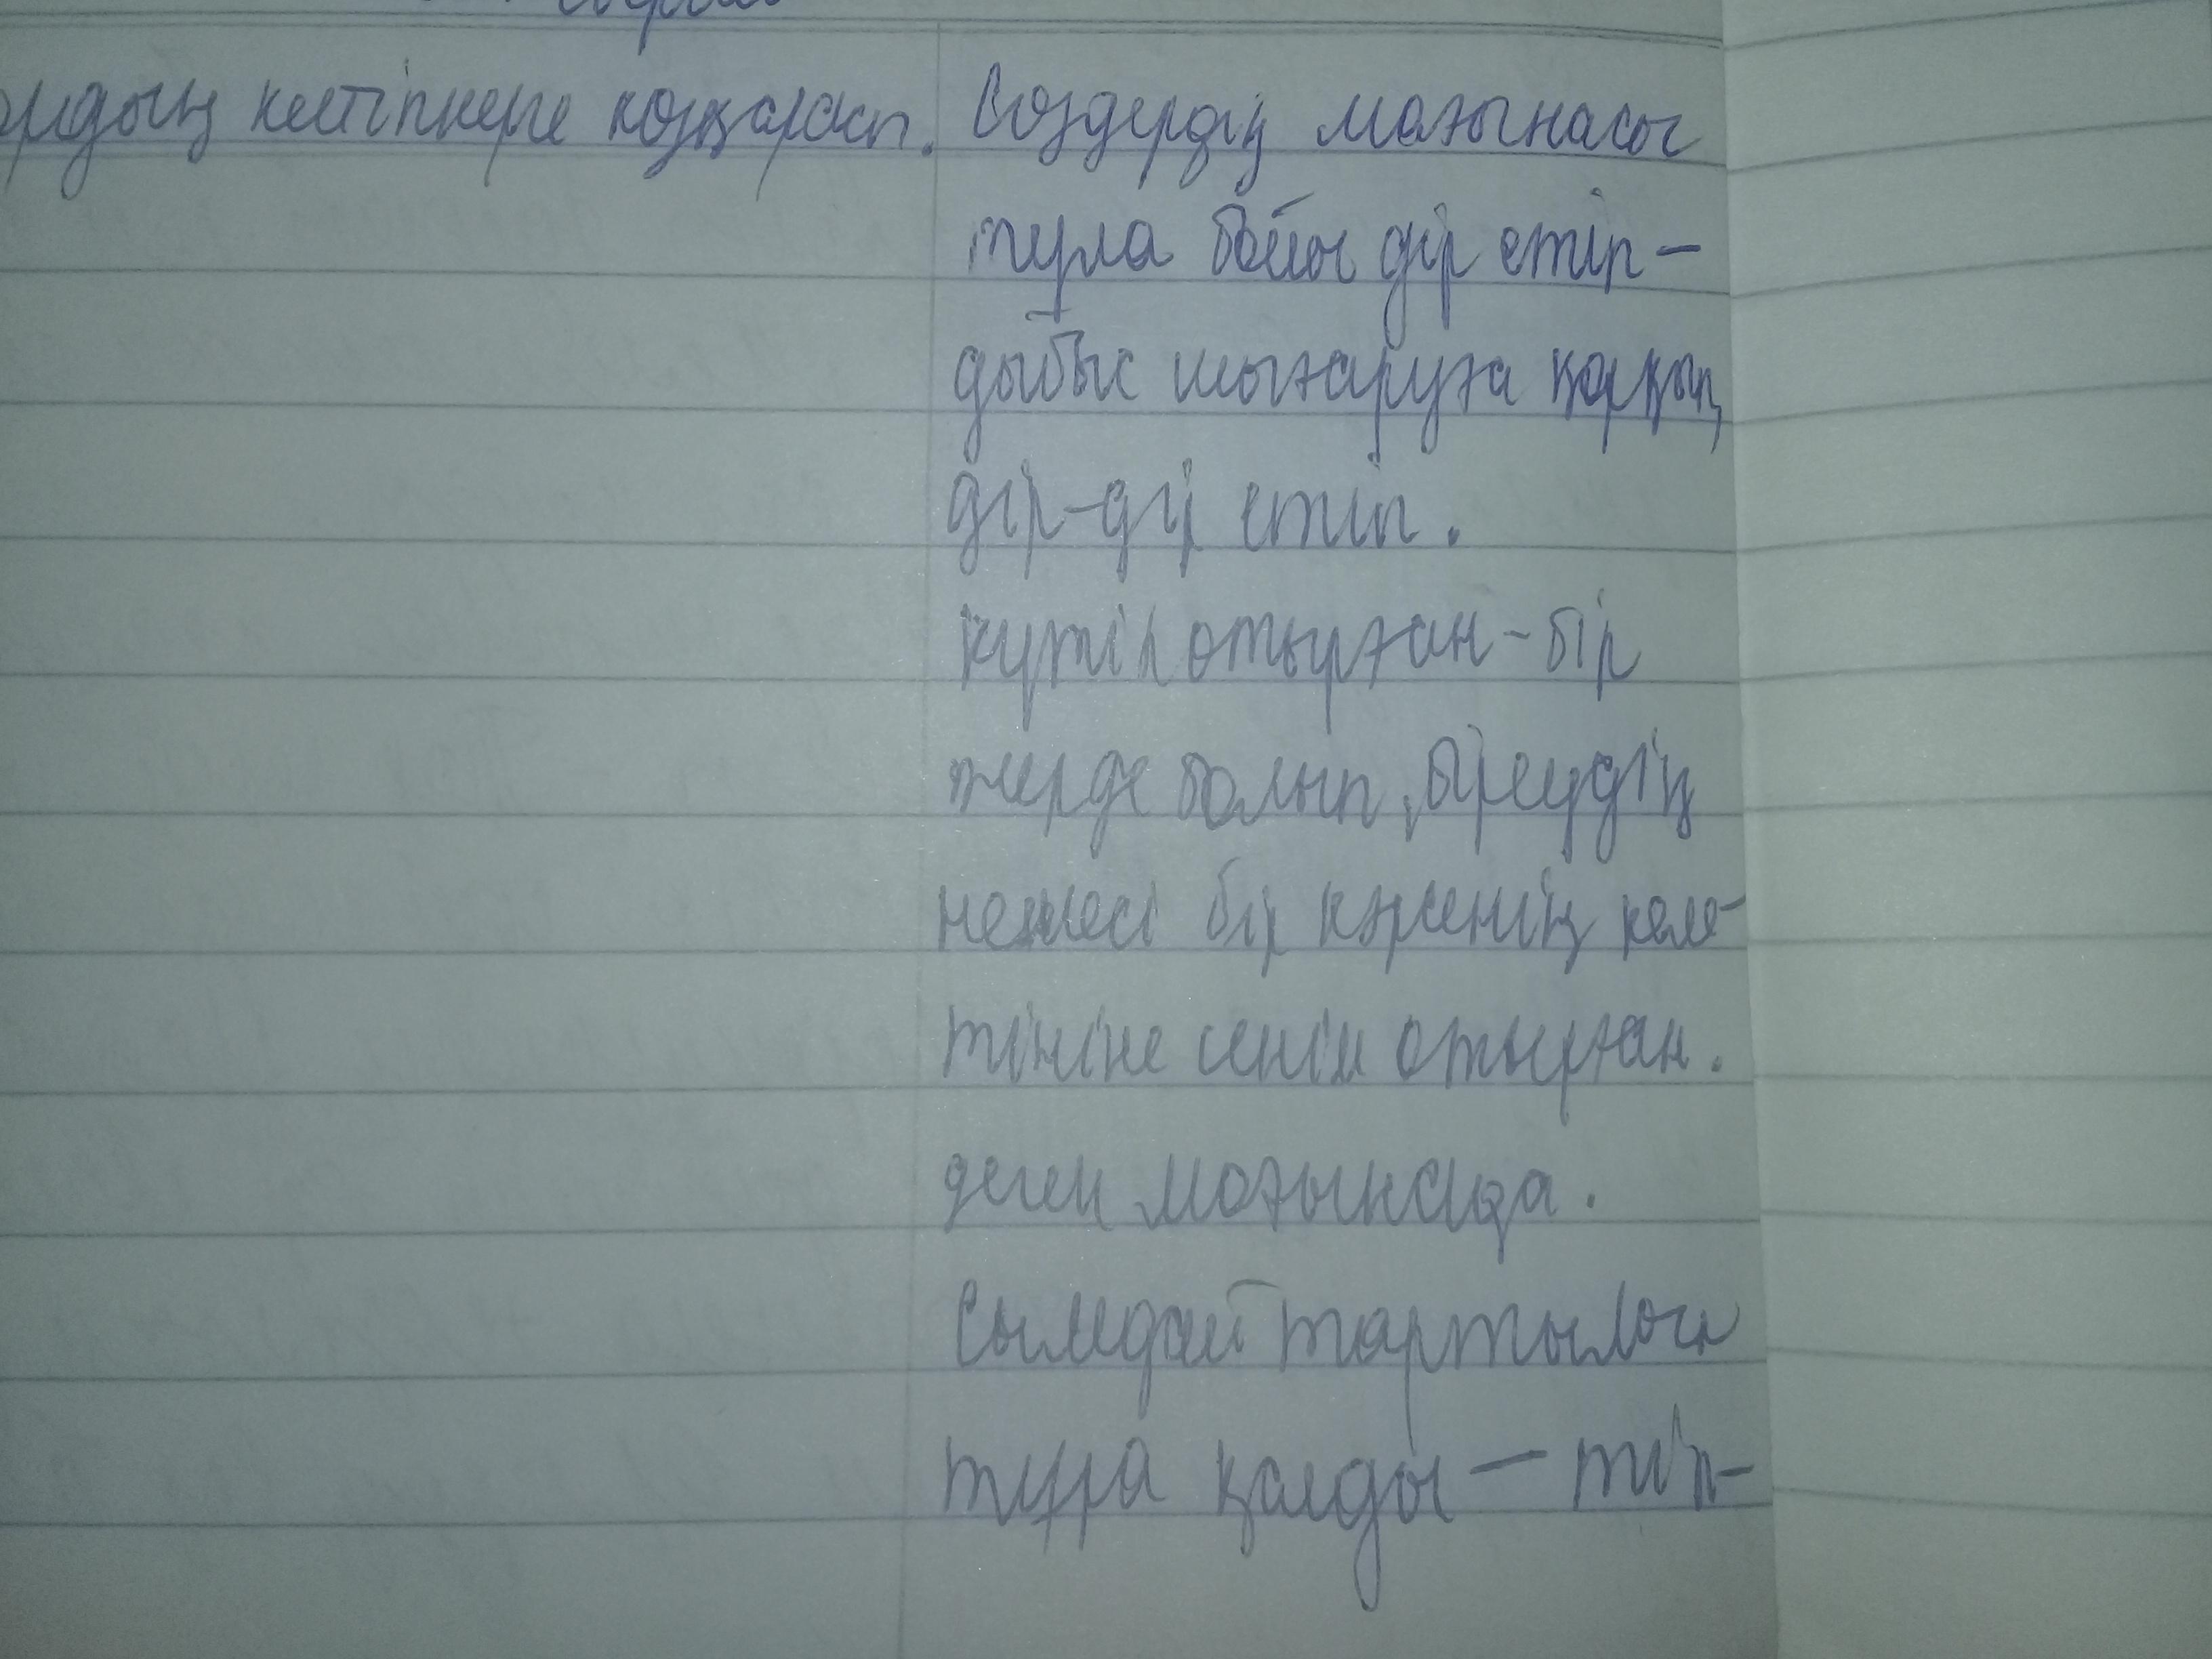 рдың кейіпкерге көзқарасы.
Сөздердің мағынасы
тұла бойы дір етіп -
дыбыс шығаруға қорқып,
дір-дір етіп.
күтіп отырған - бір
жерде болып, біреудің
немесе бір нәрсенің келе-
тініне сеніп отырған.
деген мағынада.
Сымдай тартылып
тұра қалды - тіп-